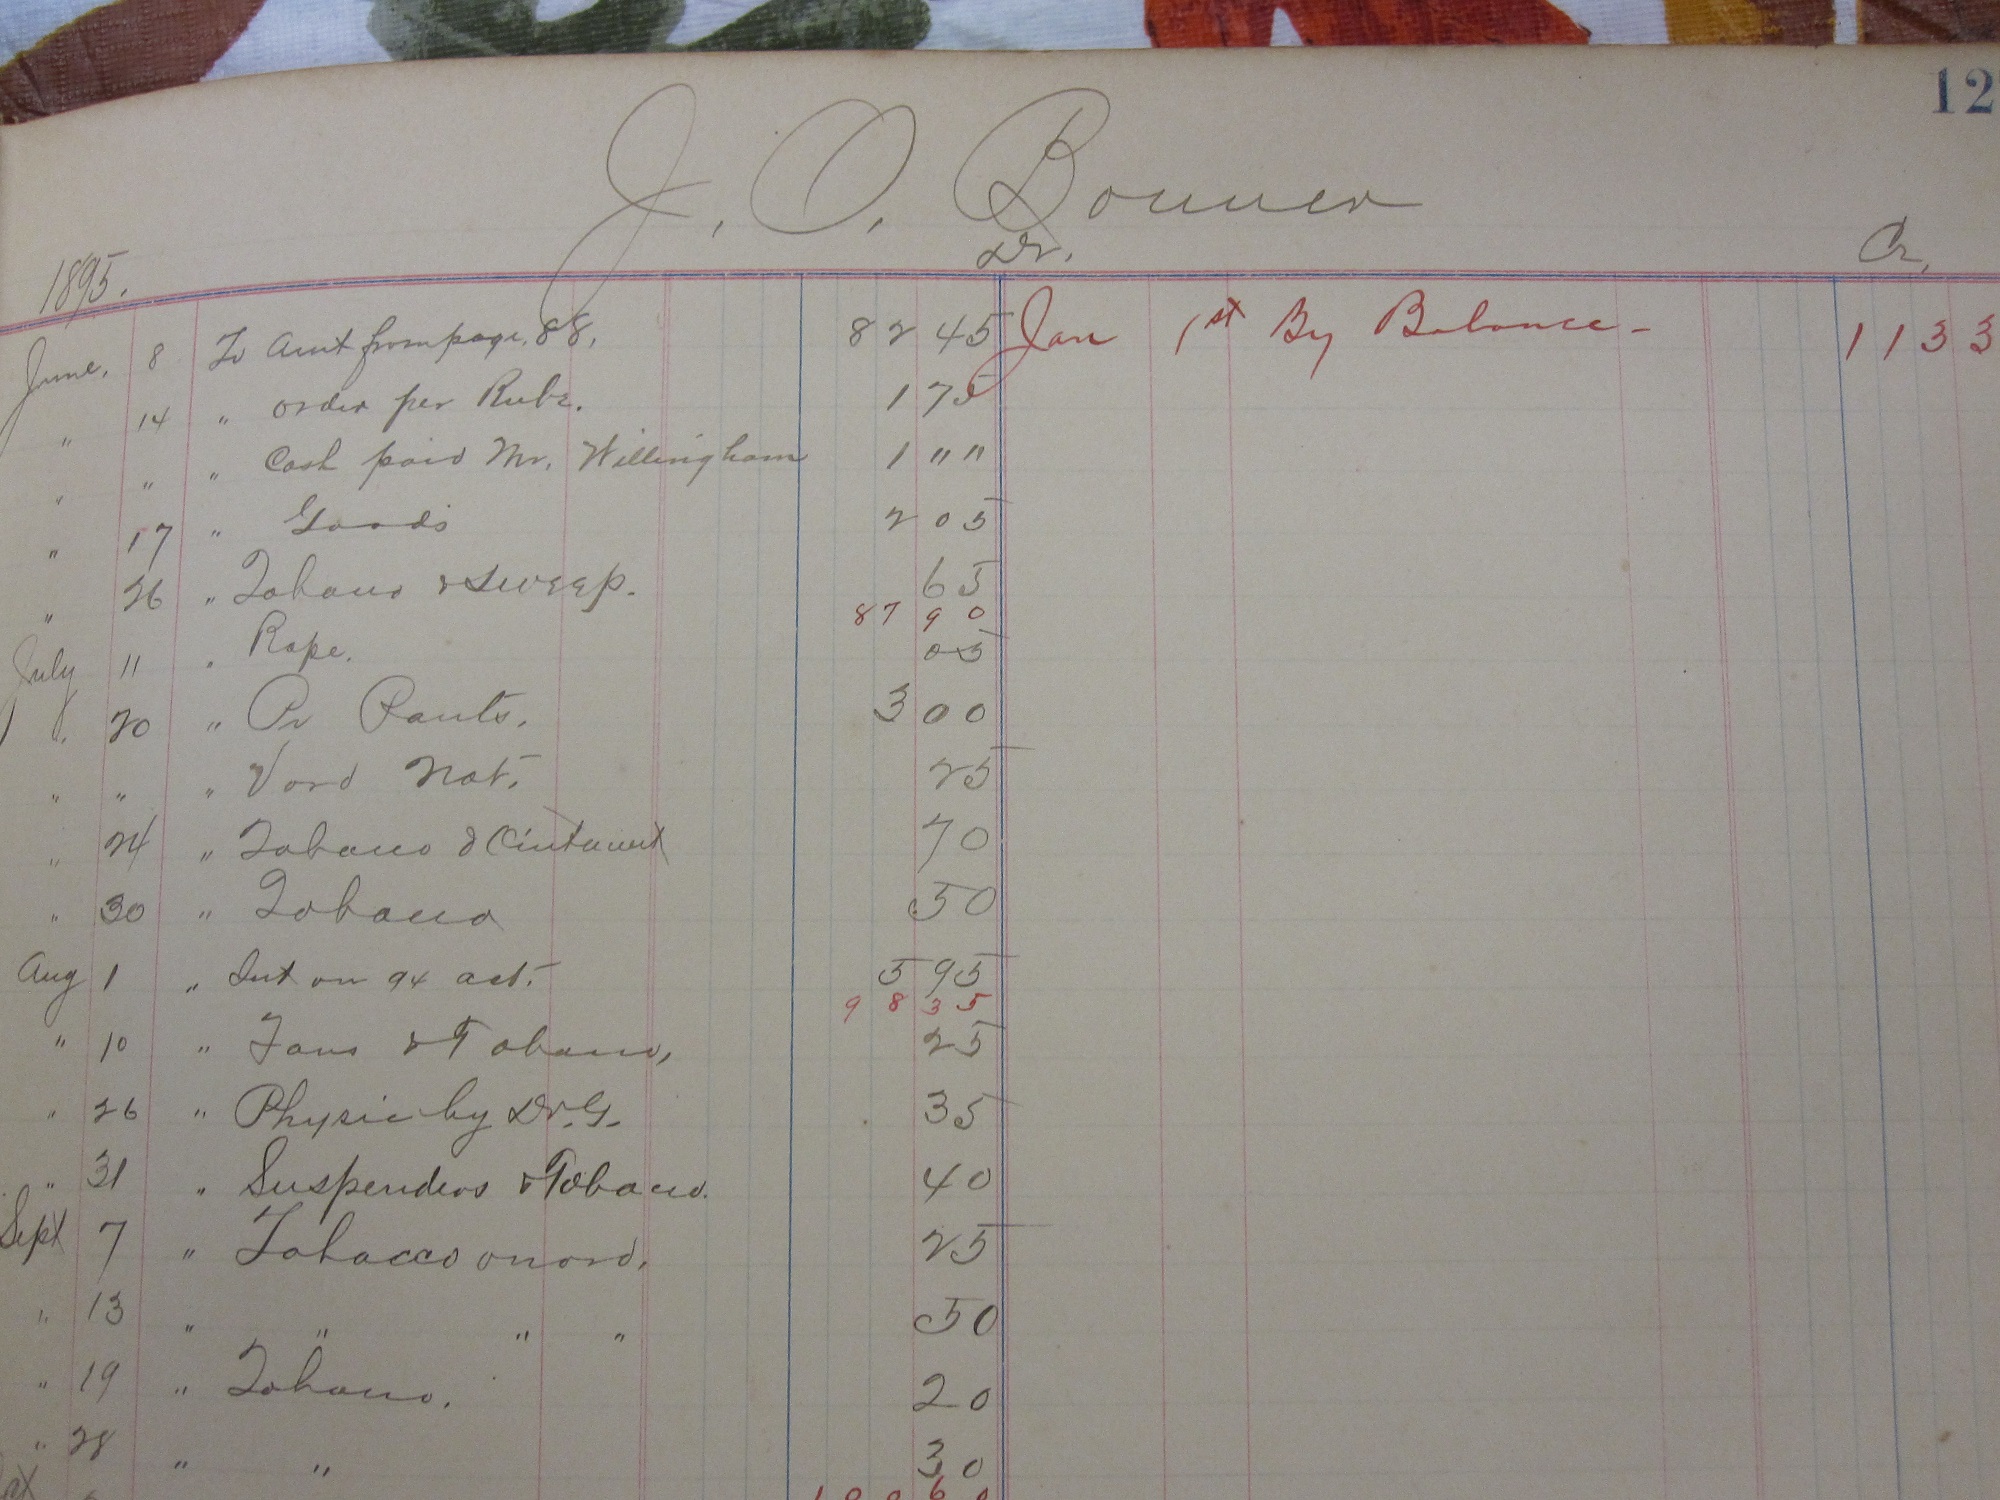 12
J. O. Bonner
1895. Dr. Cr.
June. 8 To Amt from page. 88. 82 45 Jan 1st By Balance - 1133
" 14 " order per Rube. 1 75
" " " Cash paid Mr. Willingham 1 " "
" 17 " Goods 2 05
" 26 " Tobacco & Sweep. 65
87 90
July 11 " Rope. 05
" 20 " Pr Pants. 3 00
" " " Vord Not. 25
" 24 " Tobacco & 70
" 30 " Tobacco 50
Aug 1 " Int on 94 act. 5 95
98 35
" 10 " Fans & Tobacco, 25
" 26 " Physic by Dr. G. 35
" 31 " Suspenders & Tobacco. 40
Sept 7 " Tobacco on ord. 25
" 13 " " " " 50
" 19 " Tobacco. 20
" 28 " " 30
100 60